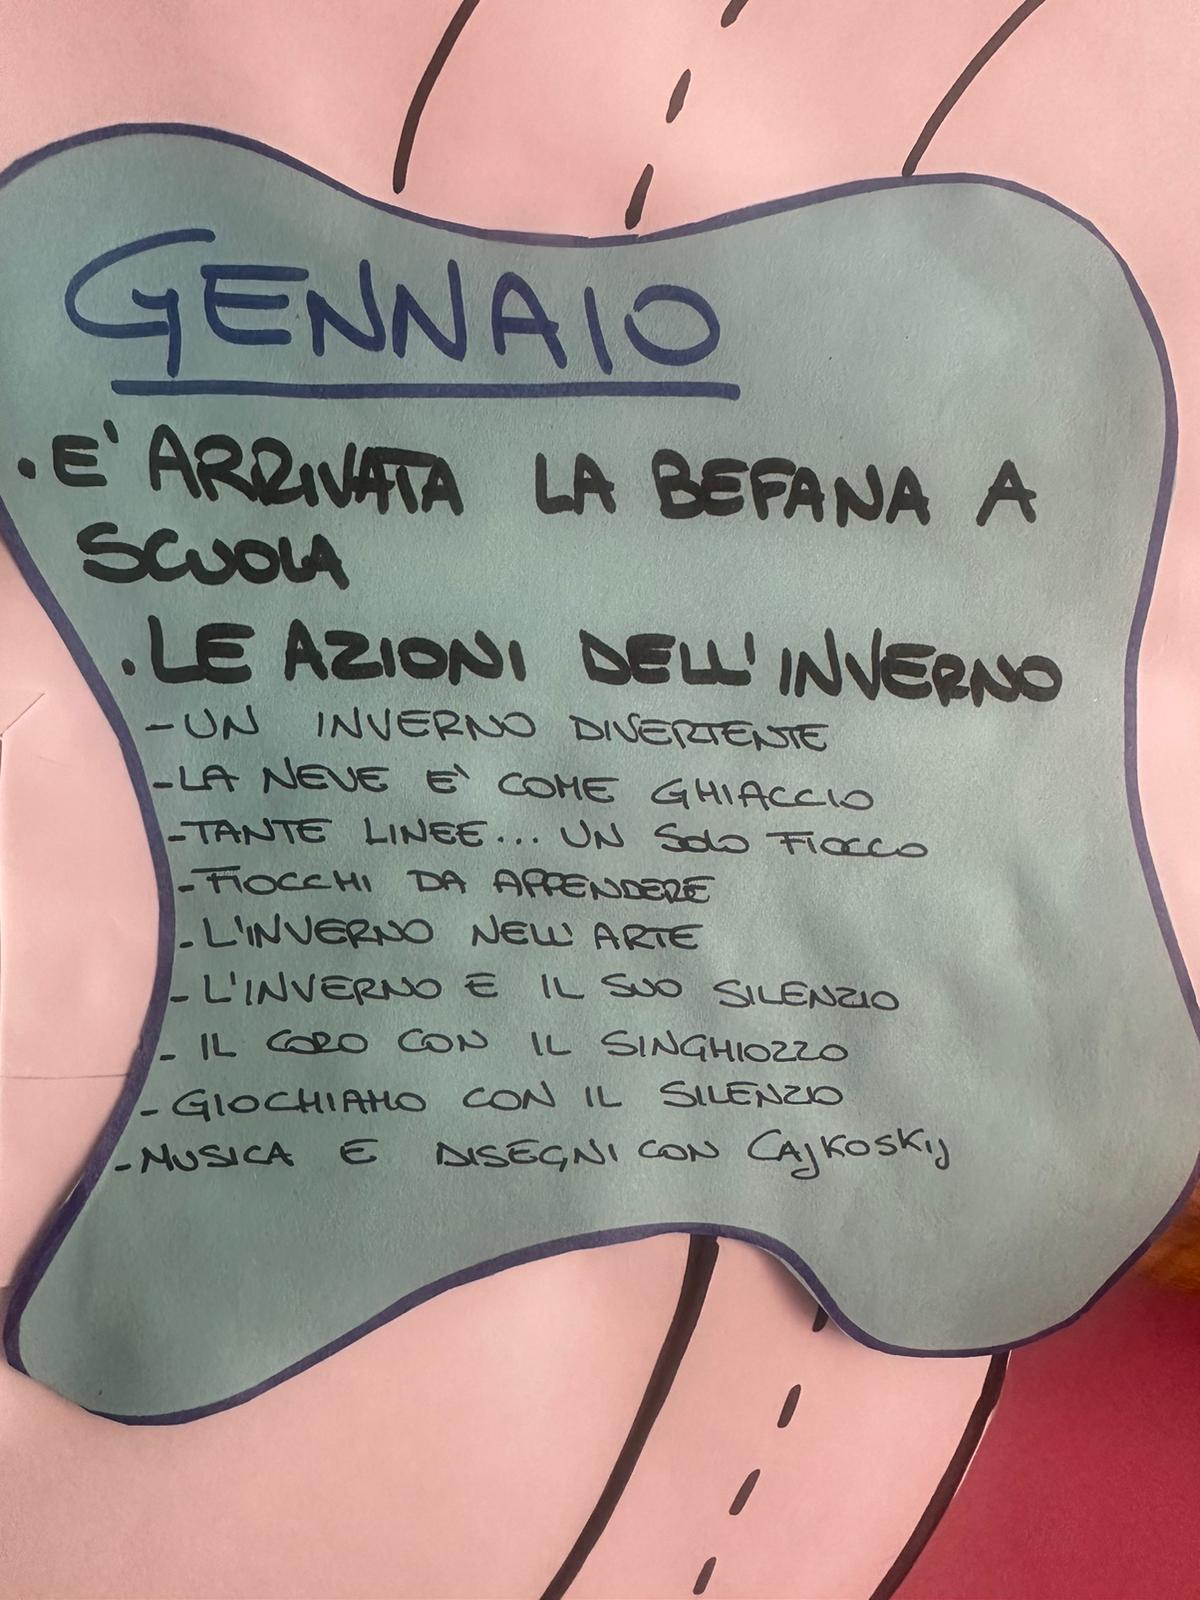 GENNAIO
. E' ARRIVATA LA BEFANA A
SCUOLA
. LE AZIONI DELL'INVERNO
- UN INVERNO DIVERTENTE
- LA NEVE E' COME GHIACCIO
- TANTE LINEE... UN SOLO FIOCCO
- FIOCCHI DA APPENDERE
- L'INVERNO NELL'ARTE
- L'INVERNO E IL SUO SILENZIO
- IL CORO CON IL SINGHIOZZO
- GIOCHIAMO CON IL SILENZIO
- MUSICA E DISEGNI CON CAJKOSKIJ